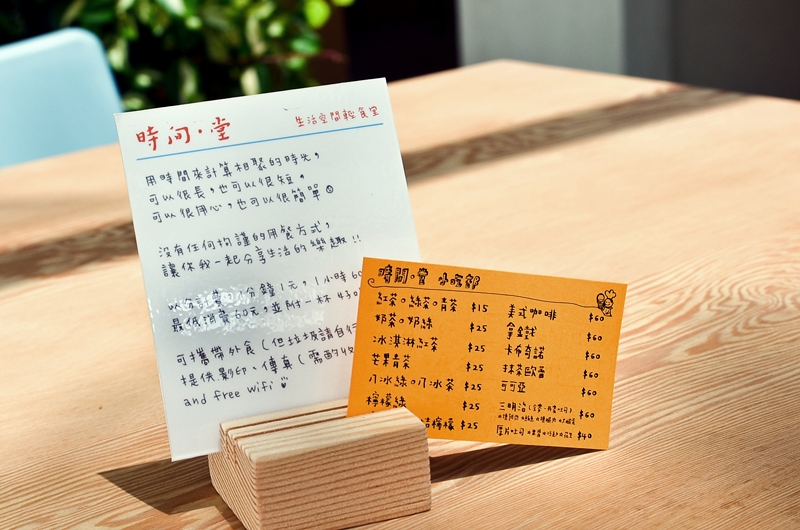 時间·堂
生活空間輕食堂
用時間來計算相聚的時光,
可以很長,也可以很短,
可以很用心,也可以很簡單
沒有任何拘謹的用餐方式,
讓你我一起分享生活的樂趣!!
分鐘1元,1小時60
最低消費60元,並附一杯
可攜帶外食(但垃圾請自行
提供影印、傳真(需酌收
and free wifi
時間·堂 小吃部
紅茶。綠茶。青茶 $15
奶茶。奶綠 $25
冰淇淋紅茶 $25
芒果青茶 $25
八冰綠。八冰茶 $25
檸檬綠 $25
結檸檬 $25
美式咖啡 $60
拿鐵 $60
卡布奇諾 $60
抹茶歐蕾 $60
可可亞 $60
三明治 $60
厚片吐司 $40